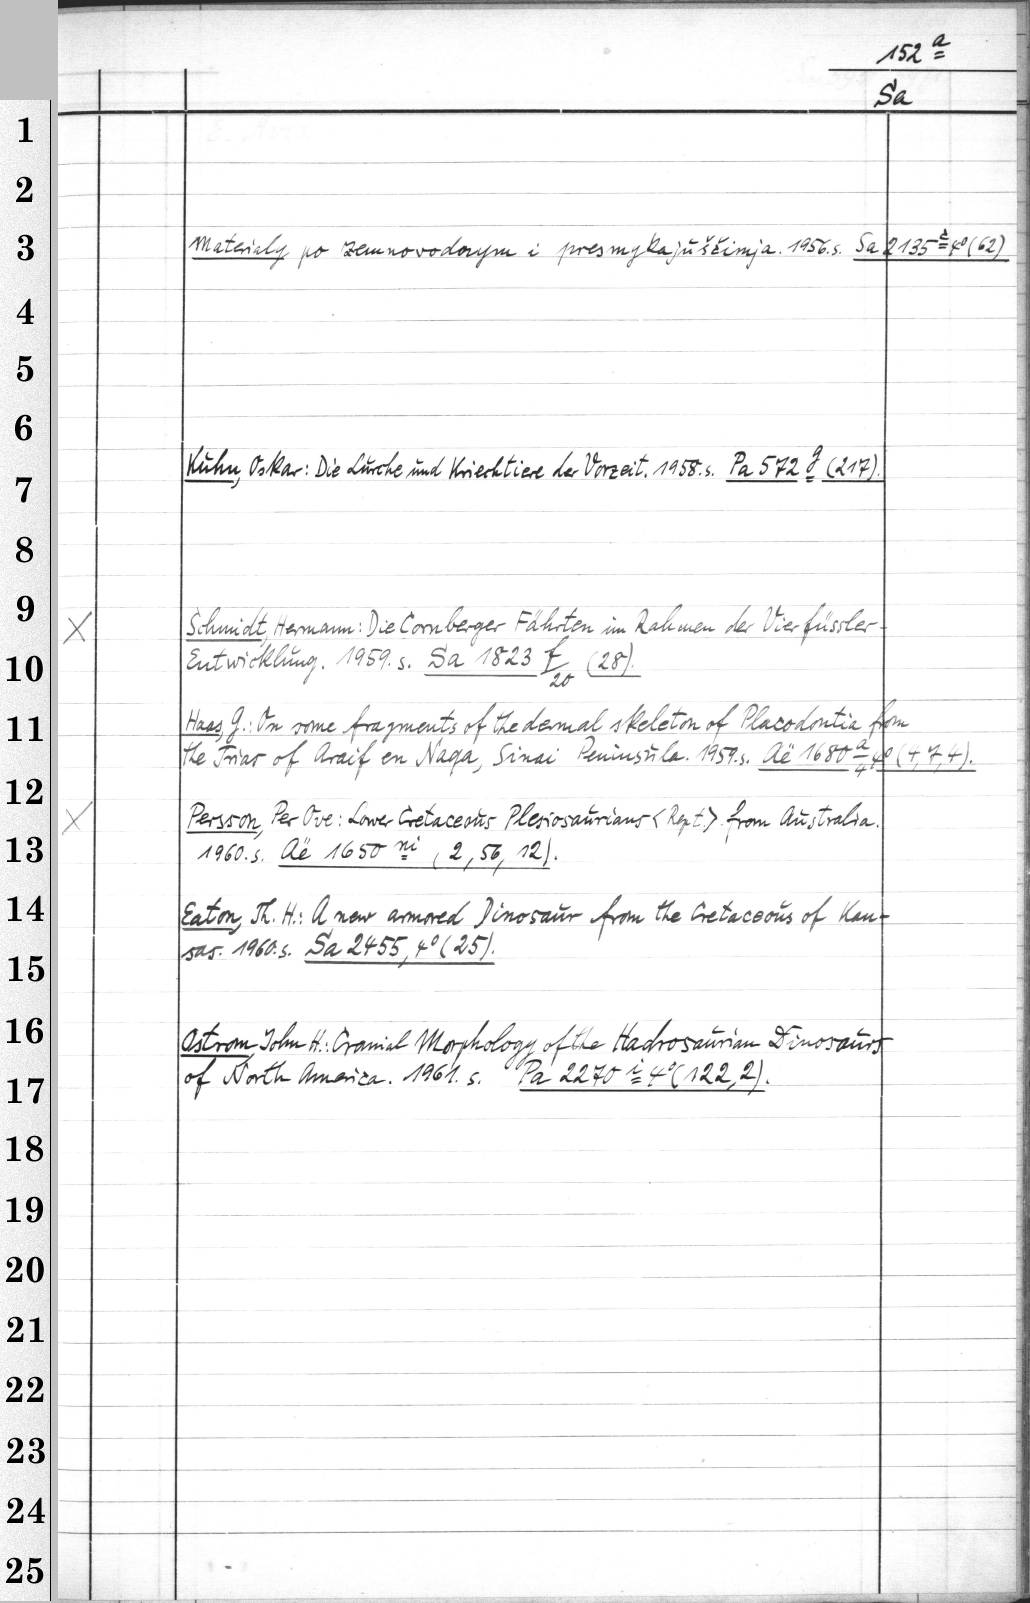 152 a
Sa
1
2
3
Materialy po zemnovodnym i presmykajuščimja. 1956. s. Sa 2135 c 4° (62)
4
5
6
Kuhn, Oskar: Die Lurche und Kriechtiere der Vorzeit. 1958. s. Pa 572 g (217).
7
8
9
X Schmidt, Hermann: Die Cornberger Fährten im Rahmen der Vierfüssler-
10
Entwicklung. 1959. s. Sa 1823 f/20 (28).
11
Haas, G.: On some fragments of the dermal skeleton of Placodontia from
the Trias of Araif en Naqa, Sinai Peninsula. 1959. s. Aë 1680 a/4 4° (+,7,4).
12
X Persson, Per Ove: Lower Cretaceous Plesiosaurians <Rept.> from Australia.
13
1960. s. Aë 1650 ni (2, 56, 12).
14
Eaton, Th. H.: A new armored Dinosaur from the Cretaceous of Kan-
sas. 1960. s. Sa 2455, 4° (25).
15
16
Ostrom, John H.: Cranial Morphology of the Hadrosaurian Dinosaurs
17
of North America. 1961. s. Pa 2270 i 4° (122,2).
18
19
20
21
22
23
24
25